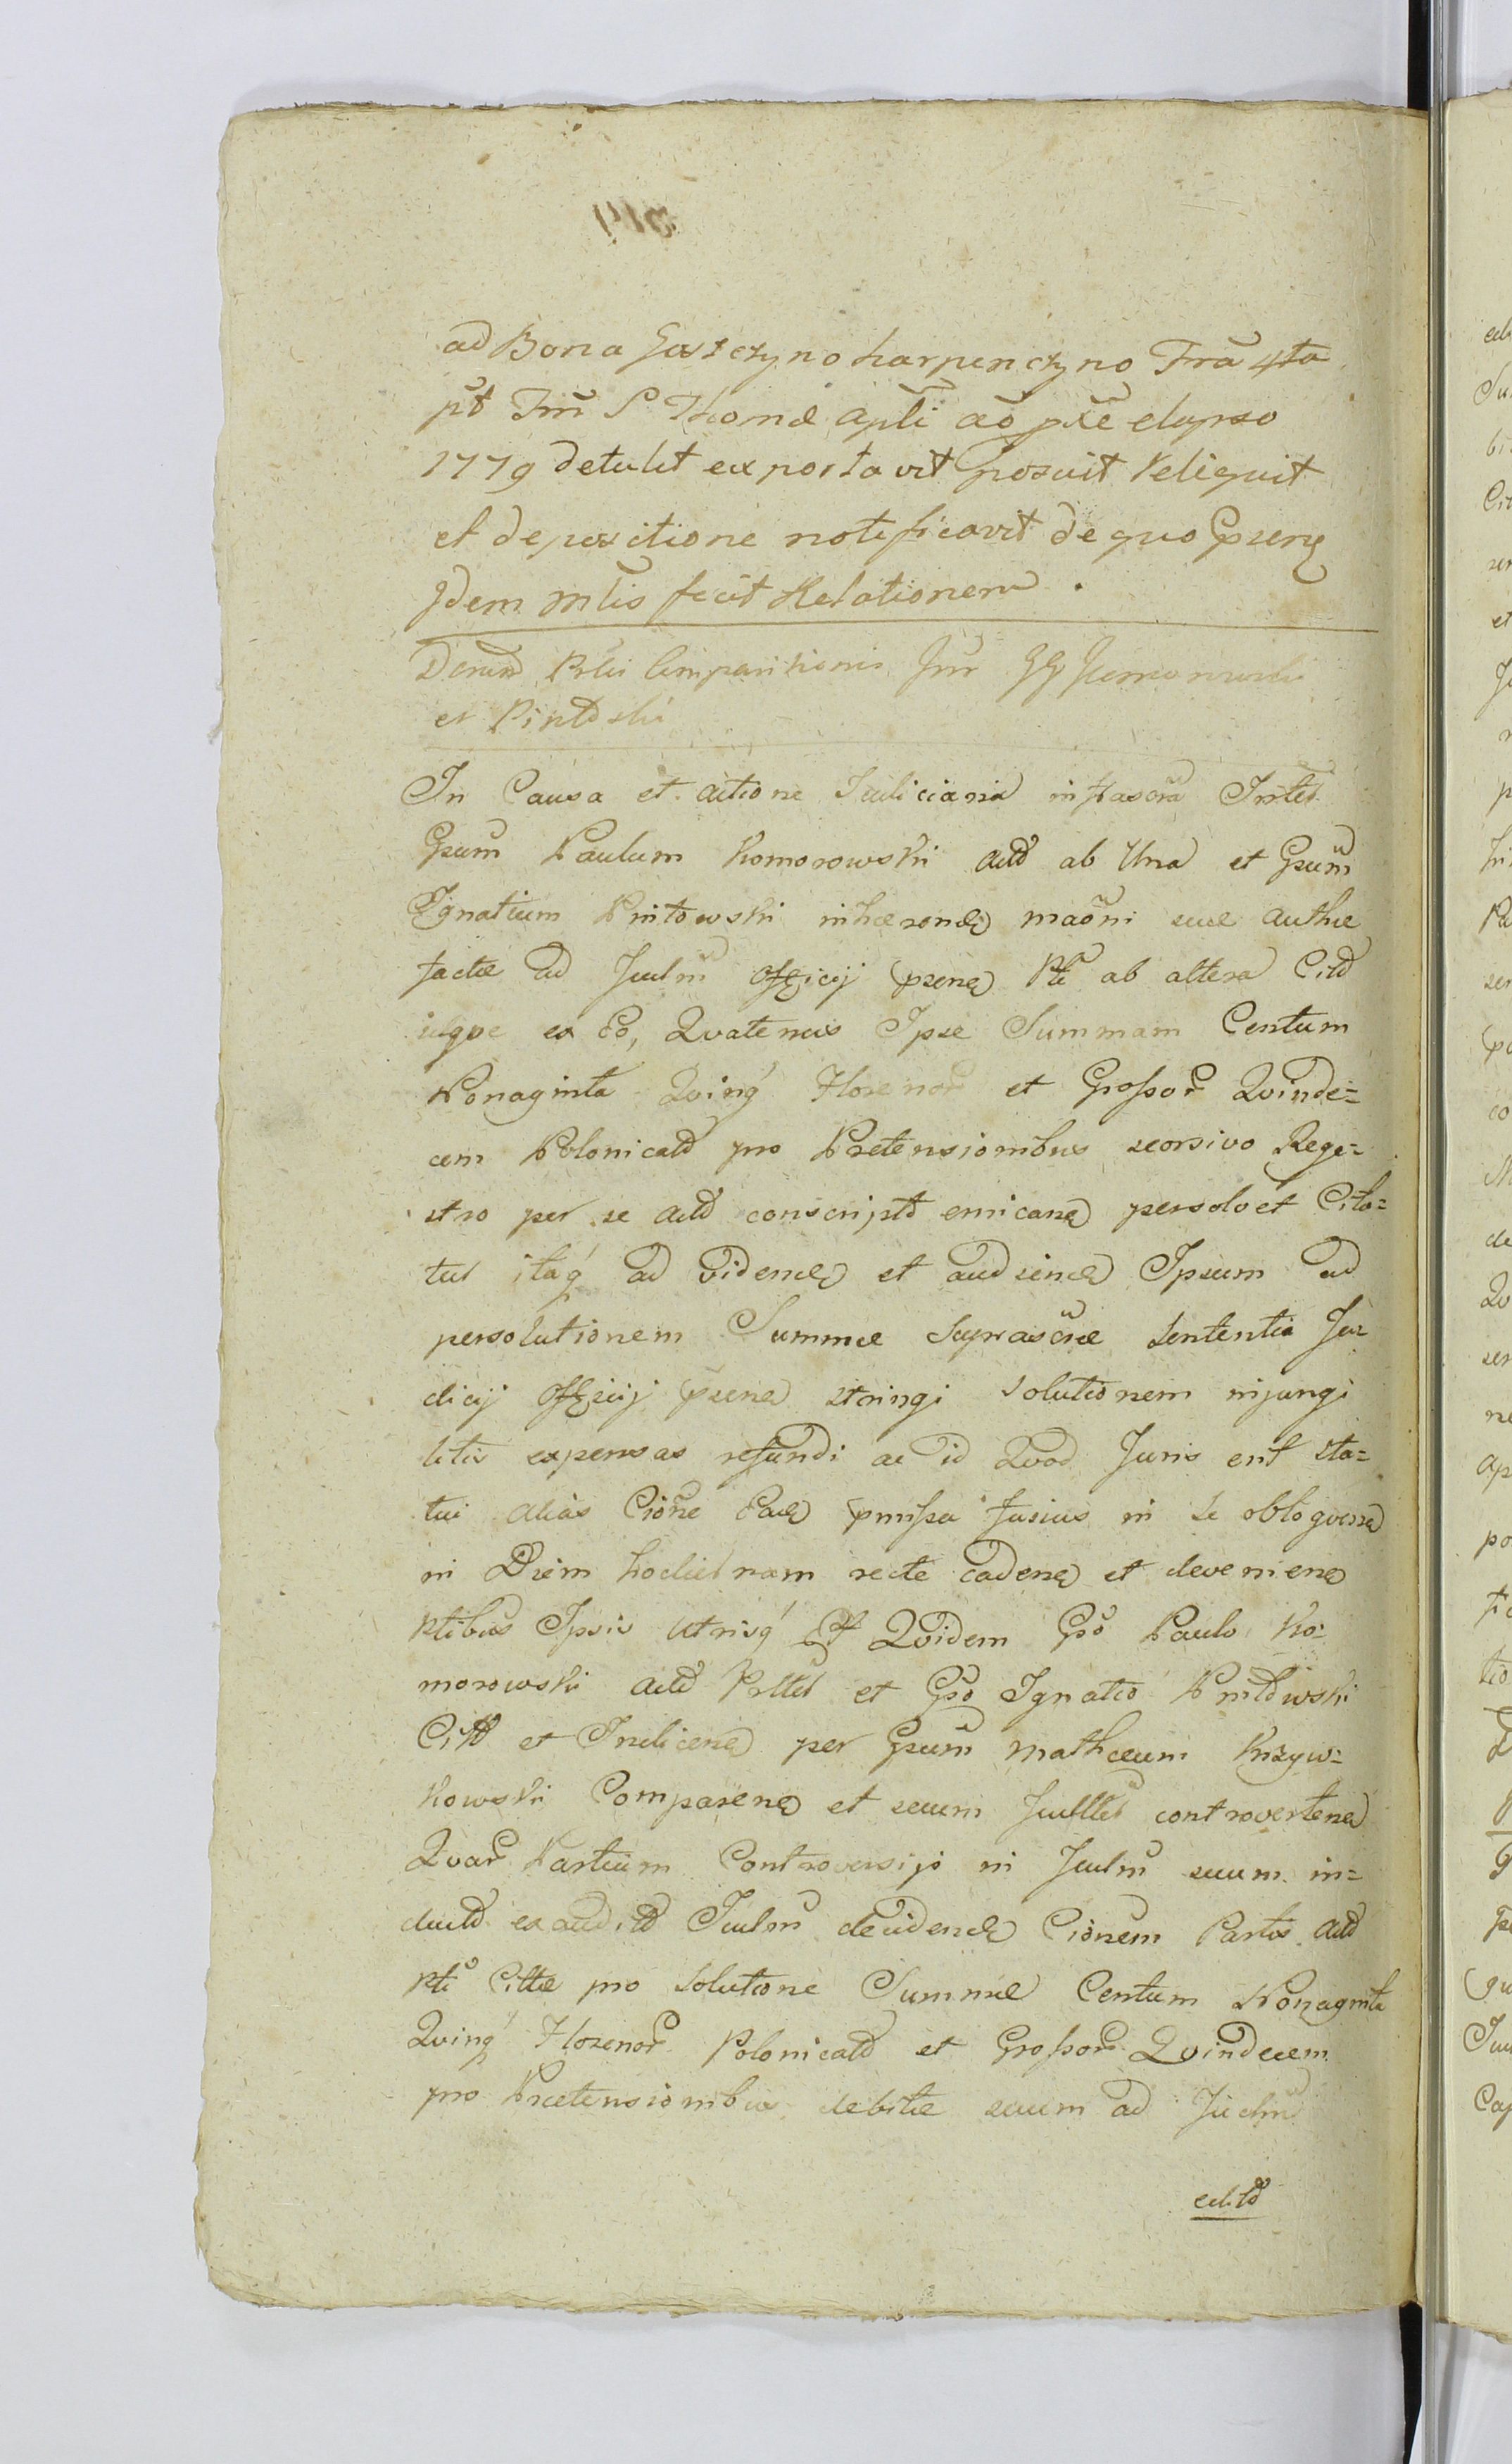 ad Bona Goszczyno karpenczyno Fra 4ta
pt Fm S Thomæ apli ao pxe elapso
1779 detulit exportavit posuit reliquit
et de positione notificavit de quo pren
Idem mlis fecit Relationem.
et Pintdski
In Causa et actione Judiciaria infrascra Inter
Gsum Paulum Komorowski actd ab Una et Gsum
Ignatium Pintowski inhærend maoni suæ authæ
factæ ad Judm Officij psens Pte ab altera Citd
idqve ex Eo, Qvatenus Ipse Summam Centum
Nonaginta Qvinq Florenor et Grossor Qvinde=
cem Polonicald pro Prætensionibus seorsivo Rege=
stro per se actd conscriptd emicans persolvet Cita=
tur itaq ad videnda et audienda Ipsum ad
persolutionem Summæ Suprascræ Sententia Ju
dicij Officij psens stringi solutionem injungi
litis expensas refundi ac id Qvod Juris erit sta=
tui alias Cione Ead pmissa fusius in se obloqvens
in Diem hodiernam recte cadens et deveniens
Ptibus Ipsis Utrisq Et Qvidem Gso Paulo Ko=
morowski actd Prtter et Gso Ignatio Pintdwski
Citt et Indicens per Gsum Mathæum Krzyw=
kowski Comparens et suum Judtter controvertens
Qvar Partium Controversijs in Judm suum in=
ductd exauditd Judm decidend Cionem Partis actd
pti Cittæ pro Solutione Summæ Centum Nonaginta
Qvinq Florenor Polonicald et Grossor Qvindecem
pro Prætensionibus debitæ suum ad Judm
editd